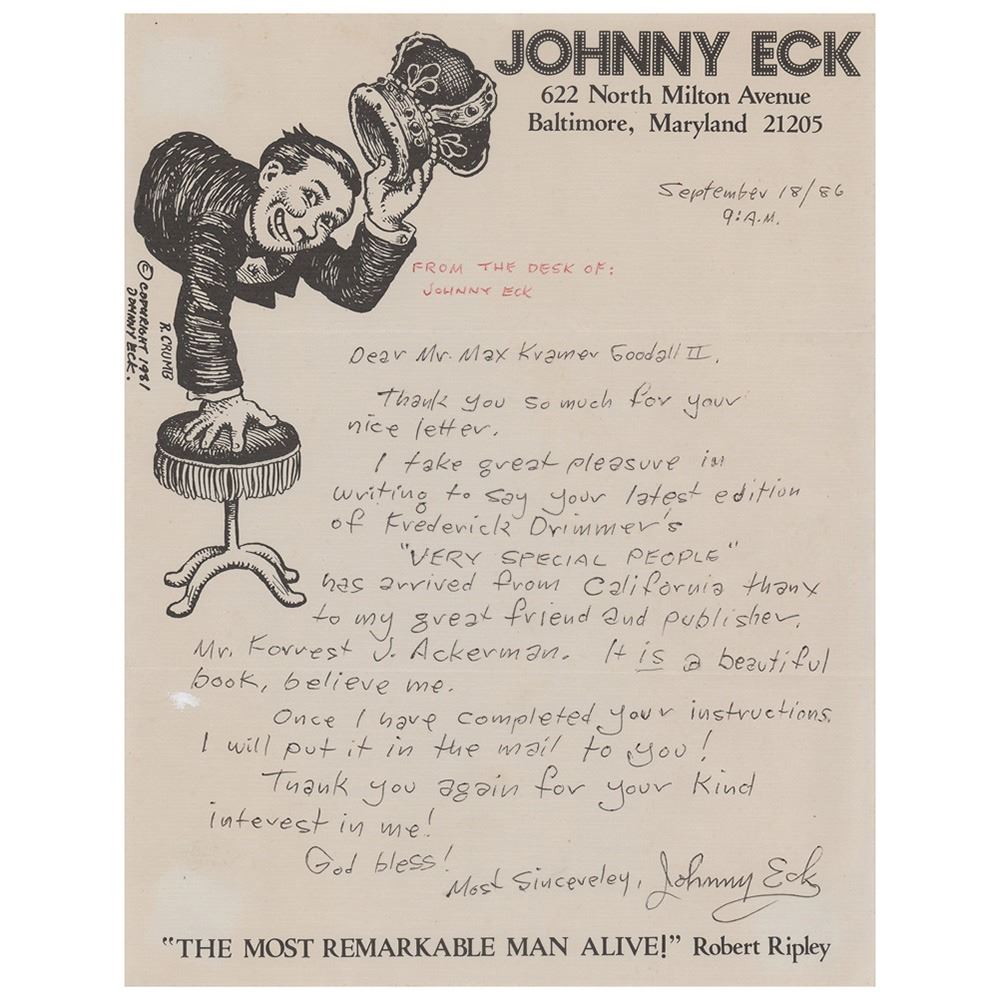 JOHNNY ECK
622 North Milton Avenue
Baltimore, Maryland 21205
September 18/86
9:A.M.
FROM THE DESK OF:
JOHNNY ECK
© COPYRIGHT 1981
JOHNNY ECK.
R. CRUMB
Dear Mr. Max Kramer Goodall II,
Thank you so much for your
nice letter.
I take great pleasure in
writing to say your latest edition
of Frederick Drimmer's
"VERY SPECIAL PEOPLE"
has arrived from California thanx
to my great friend and publisher,
Mr. Forrest J. Ackerman. It is a beautiful
book, believe me.
Once I have completed your instructions,
I will put it in the mail to you!
Thank you again for your kind
interest in me!
God bless!
Most Sincereley, Johnny Eck
"THE MOST REMARKABLE MAN ALIVE!" Robert Ripley